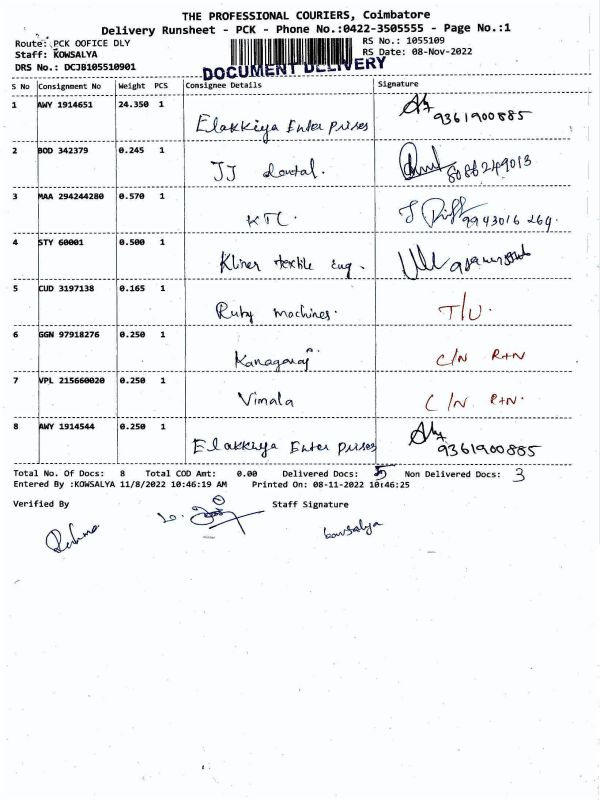 THE PROFESSIONAL COURIERS, Coimbatore
Delivery Runsheet - PCK - Phone No.:0422-3505555 - Page No.:1
Route: PCK OOFICE DLY
RS No.: 1055109
Staff: KOWSALYA
RS Date: 08-Nov-2022
DRS No.: DCJB105510901
DOCUMENT DELIVERY
S No Consignment No Weight PCS Consignee Details Signature
1 AWY 1914651 24.350 1
Elakkiya Enter prises 9361900885
2 BOD 342379 0.245 1
JJ dental.
3 MAA 294244280 0.570 1
KTC. 9943016 264.
4 STY 60001 0.500 1
Kliner textile Eng.
5 CUD 3197138 0.165 1
Ruby machines. T/U.
6 GGN 97918276 0.250 1
Kanagaraj C/N R+N
7 VPL 215660020 0.250 1
Vimala C/N R+N.
8 AWY 1914544 0.250 1
Elakkiya Enter prises 9361900885
Total No. Of Docs: 8 Total COD Amt: 0.00 Delivered Docs: 5 Non Delivered Docs: 3
Entered By :KOWSALYA 11/8/2022 10:46:19 AM Printed On: 08-11-2022 10:46:25
Verified By Staff Signature
kowsalya